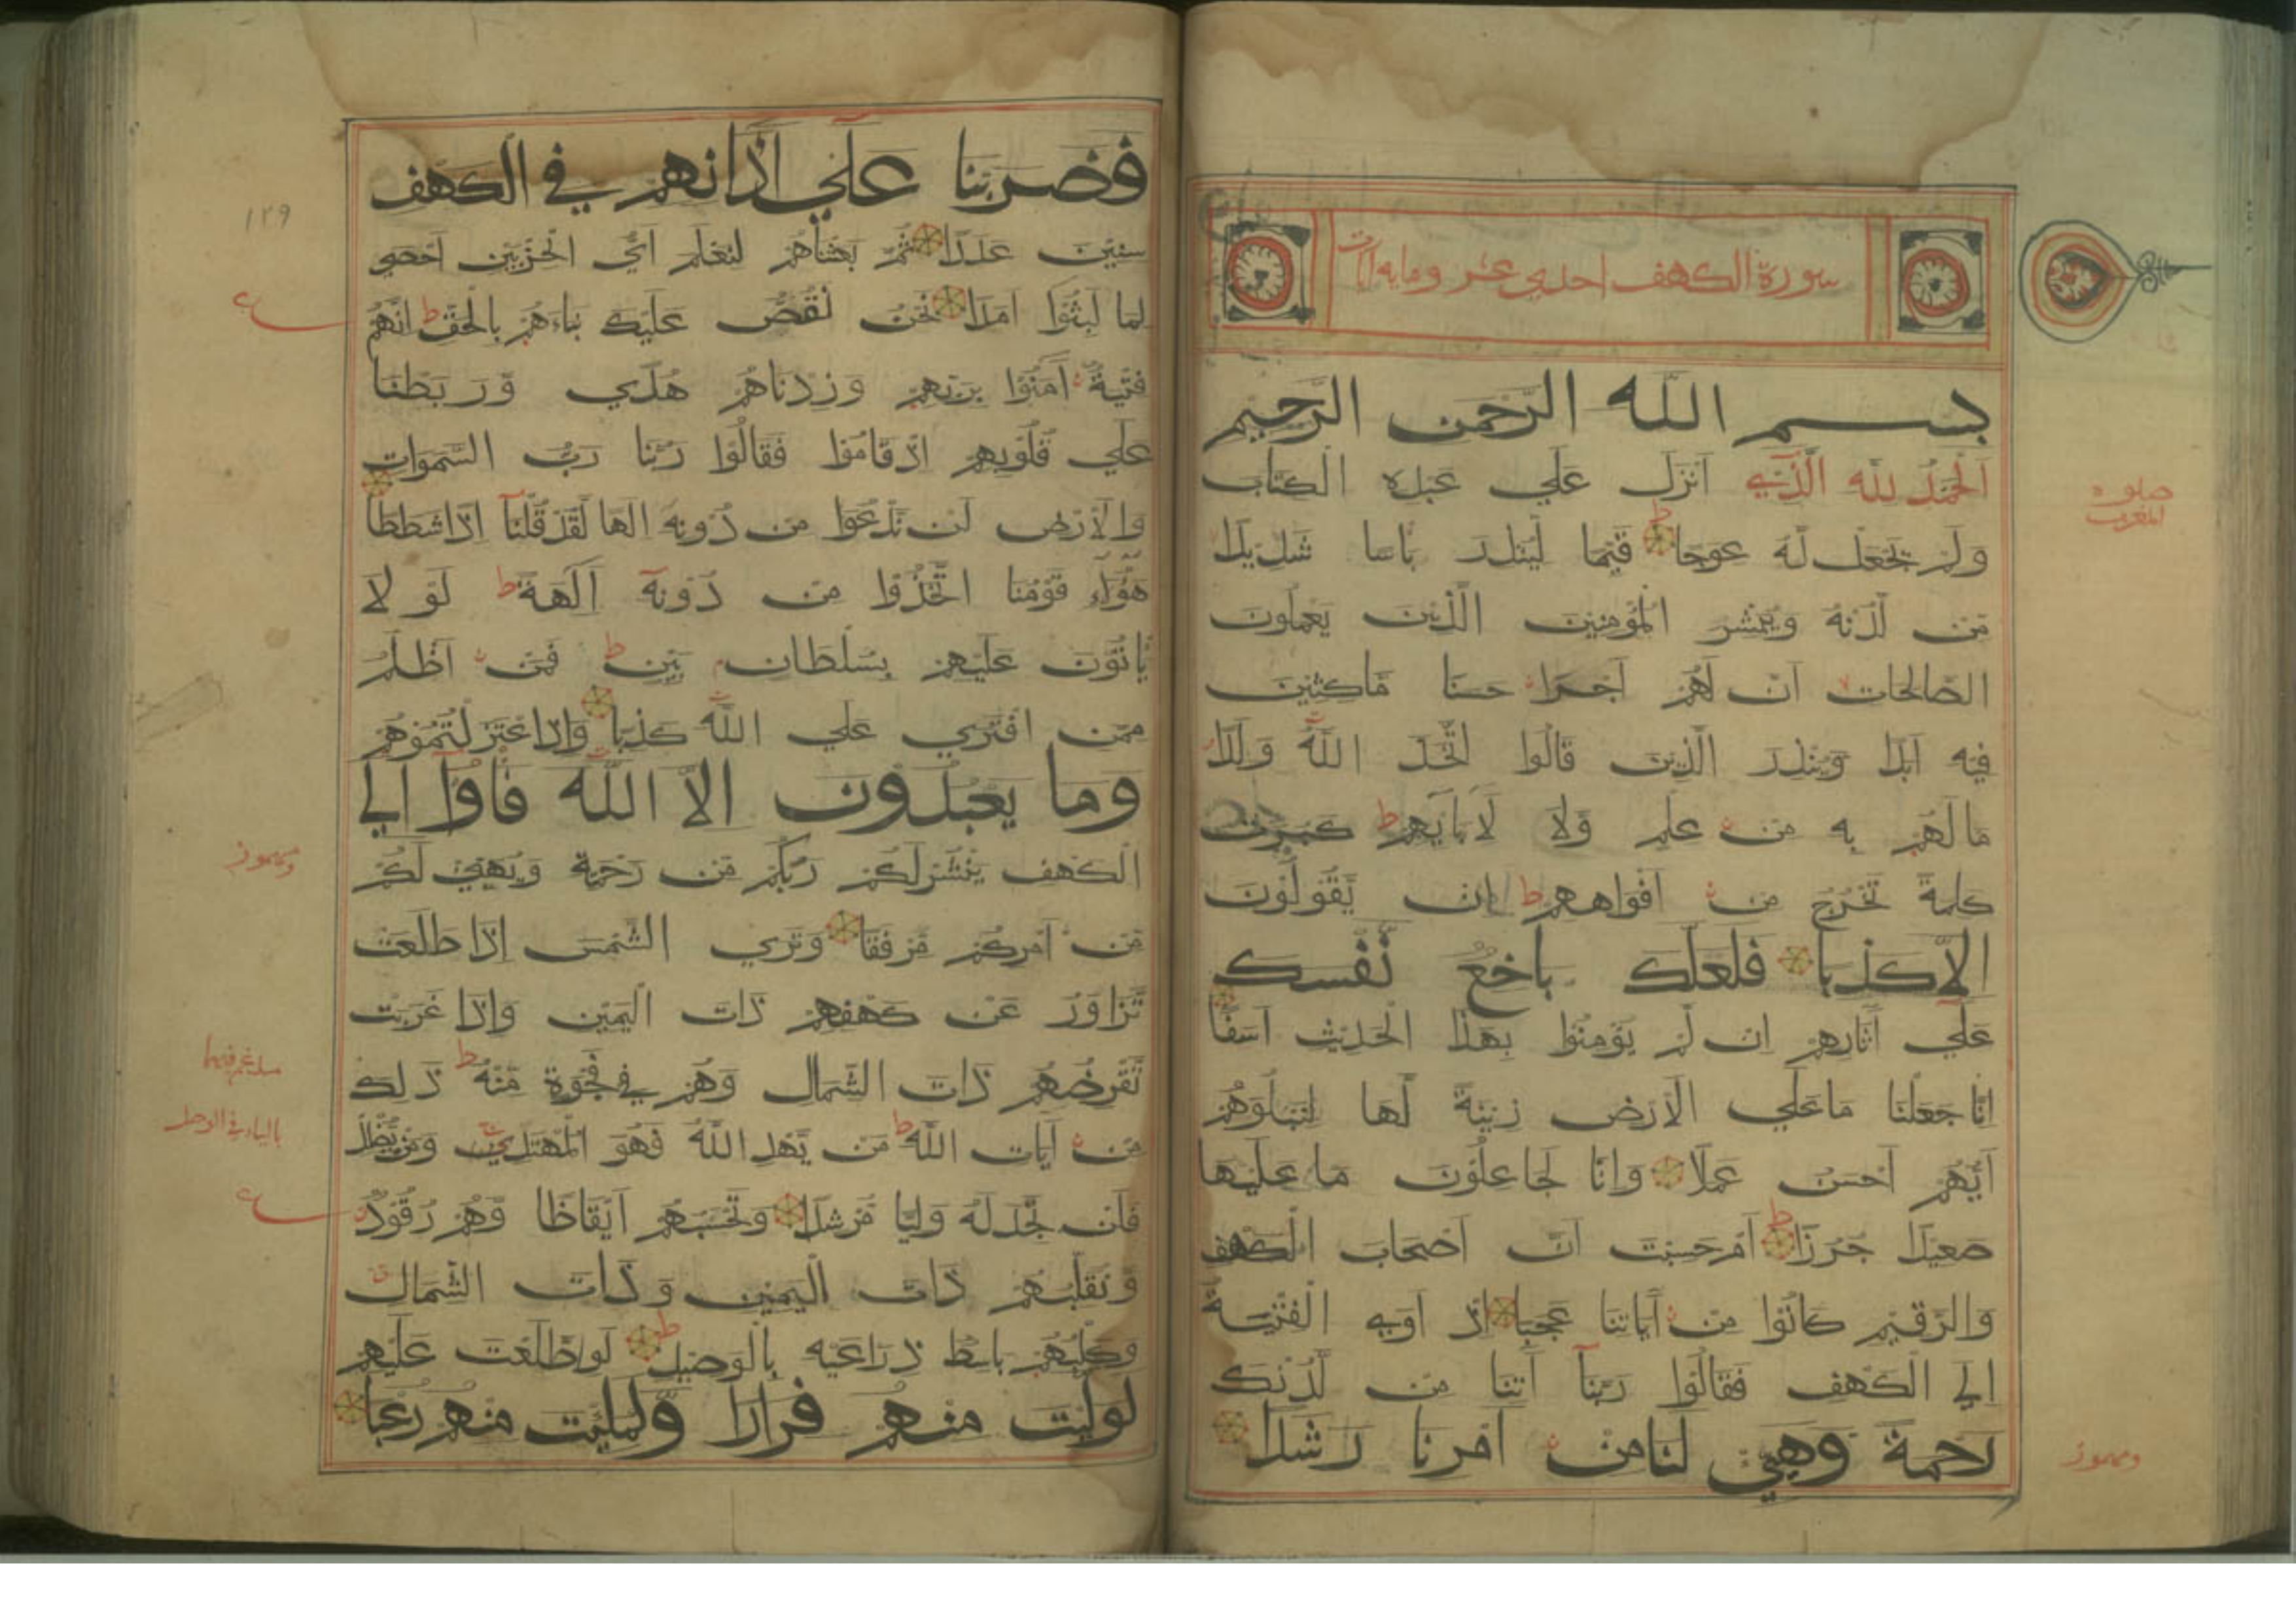 سورة الكهف احدي عشر ومايه ايات
بسم الله الرحمن الرحيم
الحمد لله الذي انزل علي عبده الكتاب
ولم يجعل له عوجا قيما لينذر باسا شديدا
من لدنه ويبشر المؤمنين الذين يعملون
الصالحات ان لهم اجرا حسنا ماكثين
فيه ابدا وينذر الذين قالوا اتخذ الله ولدا
ما لهم به من علم ولا لابايهم كبرت
كلمة تخرج من افواههم ان يقولون
الا كذبا فلعلك باخع نفسك
علي اثارهم ان لم يؤمنوا بهذا الحديث اسفا
انا جعلنا ما علي الارض زينة لها لنبلوهم
ايهم احسن عملا وانا لجاعلون ما عليها
صعيدا جرزا ام حسبت ان اصحاب الكهف
والرقيم كانوا من اياتنا عجبا اذ اوي الفتية
الي الكهف فقالوا ربنا اتنا من لدنك
رحمة وهيئ لنا من امرنا رشدا
صلوه
المغرب
ومهموز
فضربنا علي اذانهم في الكهف
سنين عددا ثم بعثناهم لنعلم اي الحزبين احصي
لما لبثوا امدا نحن نقص عليك نباءهم بالحق انهم
فتية امنوا بربهم وزدناهم هدي وربطنا
علي قلوبهم اذ قاموا فقالوا ربنا رب السموات
والارض لن ندعوا من دونه الها لقد قلنا اذا شططا
هؤلاء قومنا اتخذوا من دونه الهة لو لا
ياتون عليهم بسلطان بين فمن اظلم
ممن افتري علي الله كذبا واذ اعتزلتموهم
وما يعبدون الا الله فاوا الي
الكهف ينشر لكم ربكم من رحمة ويهيئ لكم
من امركم مرفقا وتري الشمس اذا طلعت
تزاور عن كهفهم ذات اليمين واذا غربت
تقرضهم ذات الشمال وهم في فجوة منه ذلك
من ايات الله من يهد الله فهو المهتدي ومن يضلل
فلن تجد له وليا مرشدا وتحسبهم ايقاظا وهم رقود
ونقلبهم ذات اليمين وذات الشمال
وكلبهم باسط ذراعيه بالوصيد لو اطلعت عليهم
لوليت منهم فرارا ولملئت منهم رعبا
١٢٩
ومهموز
بالياء في الوصل